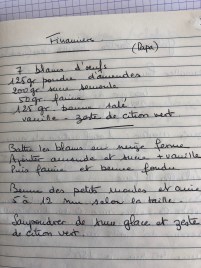 Financiers
(Papi)
7 blancs d'oeufs
125gr poudre d'amandes
200gr sucre semoule
50gr farine
125gr beurre salé
vanille + zeste de citron vert
Battre les blancs en neige ferme
Ajouter amande et sucre + vanille
Puis farine et beurre fondu
Beurrer des petits moules et cuire
à 12 mn selon la taille.
Saupoudrer de sucre glace et zeste
de citron vert.